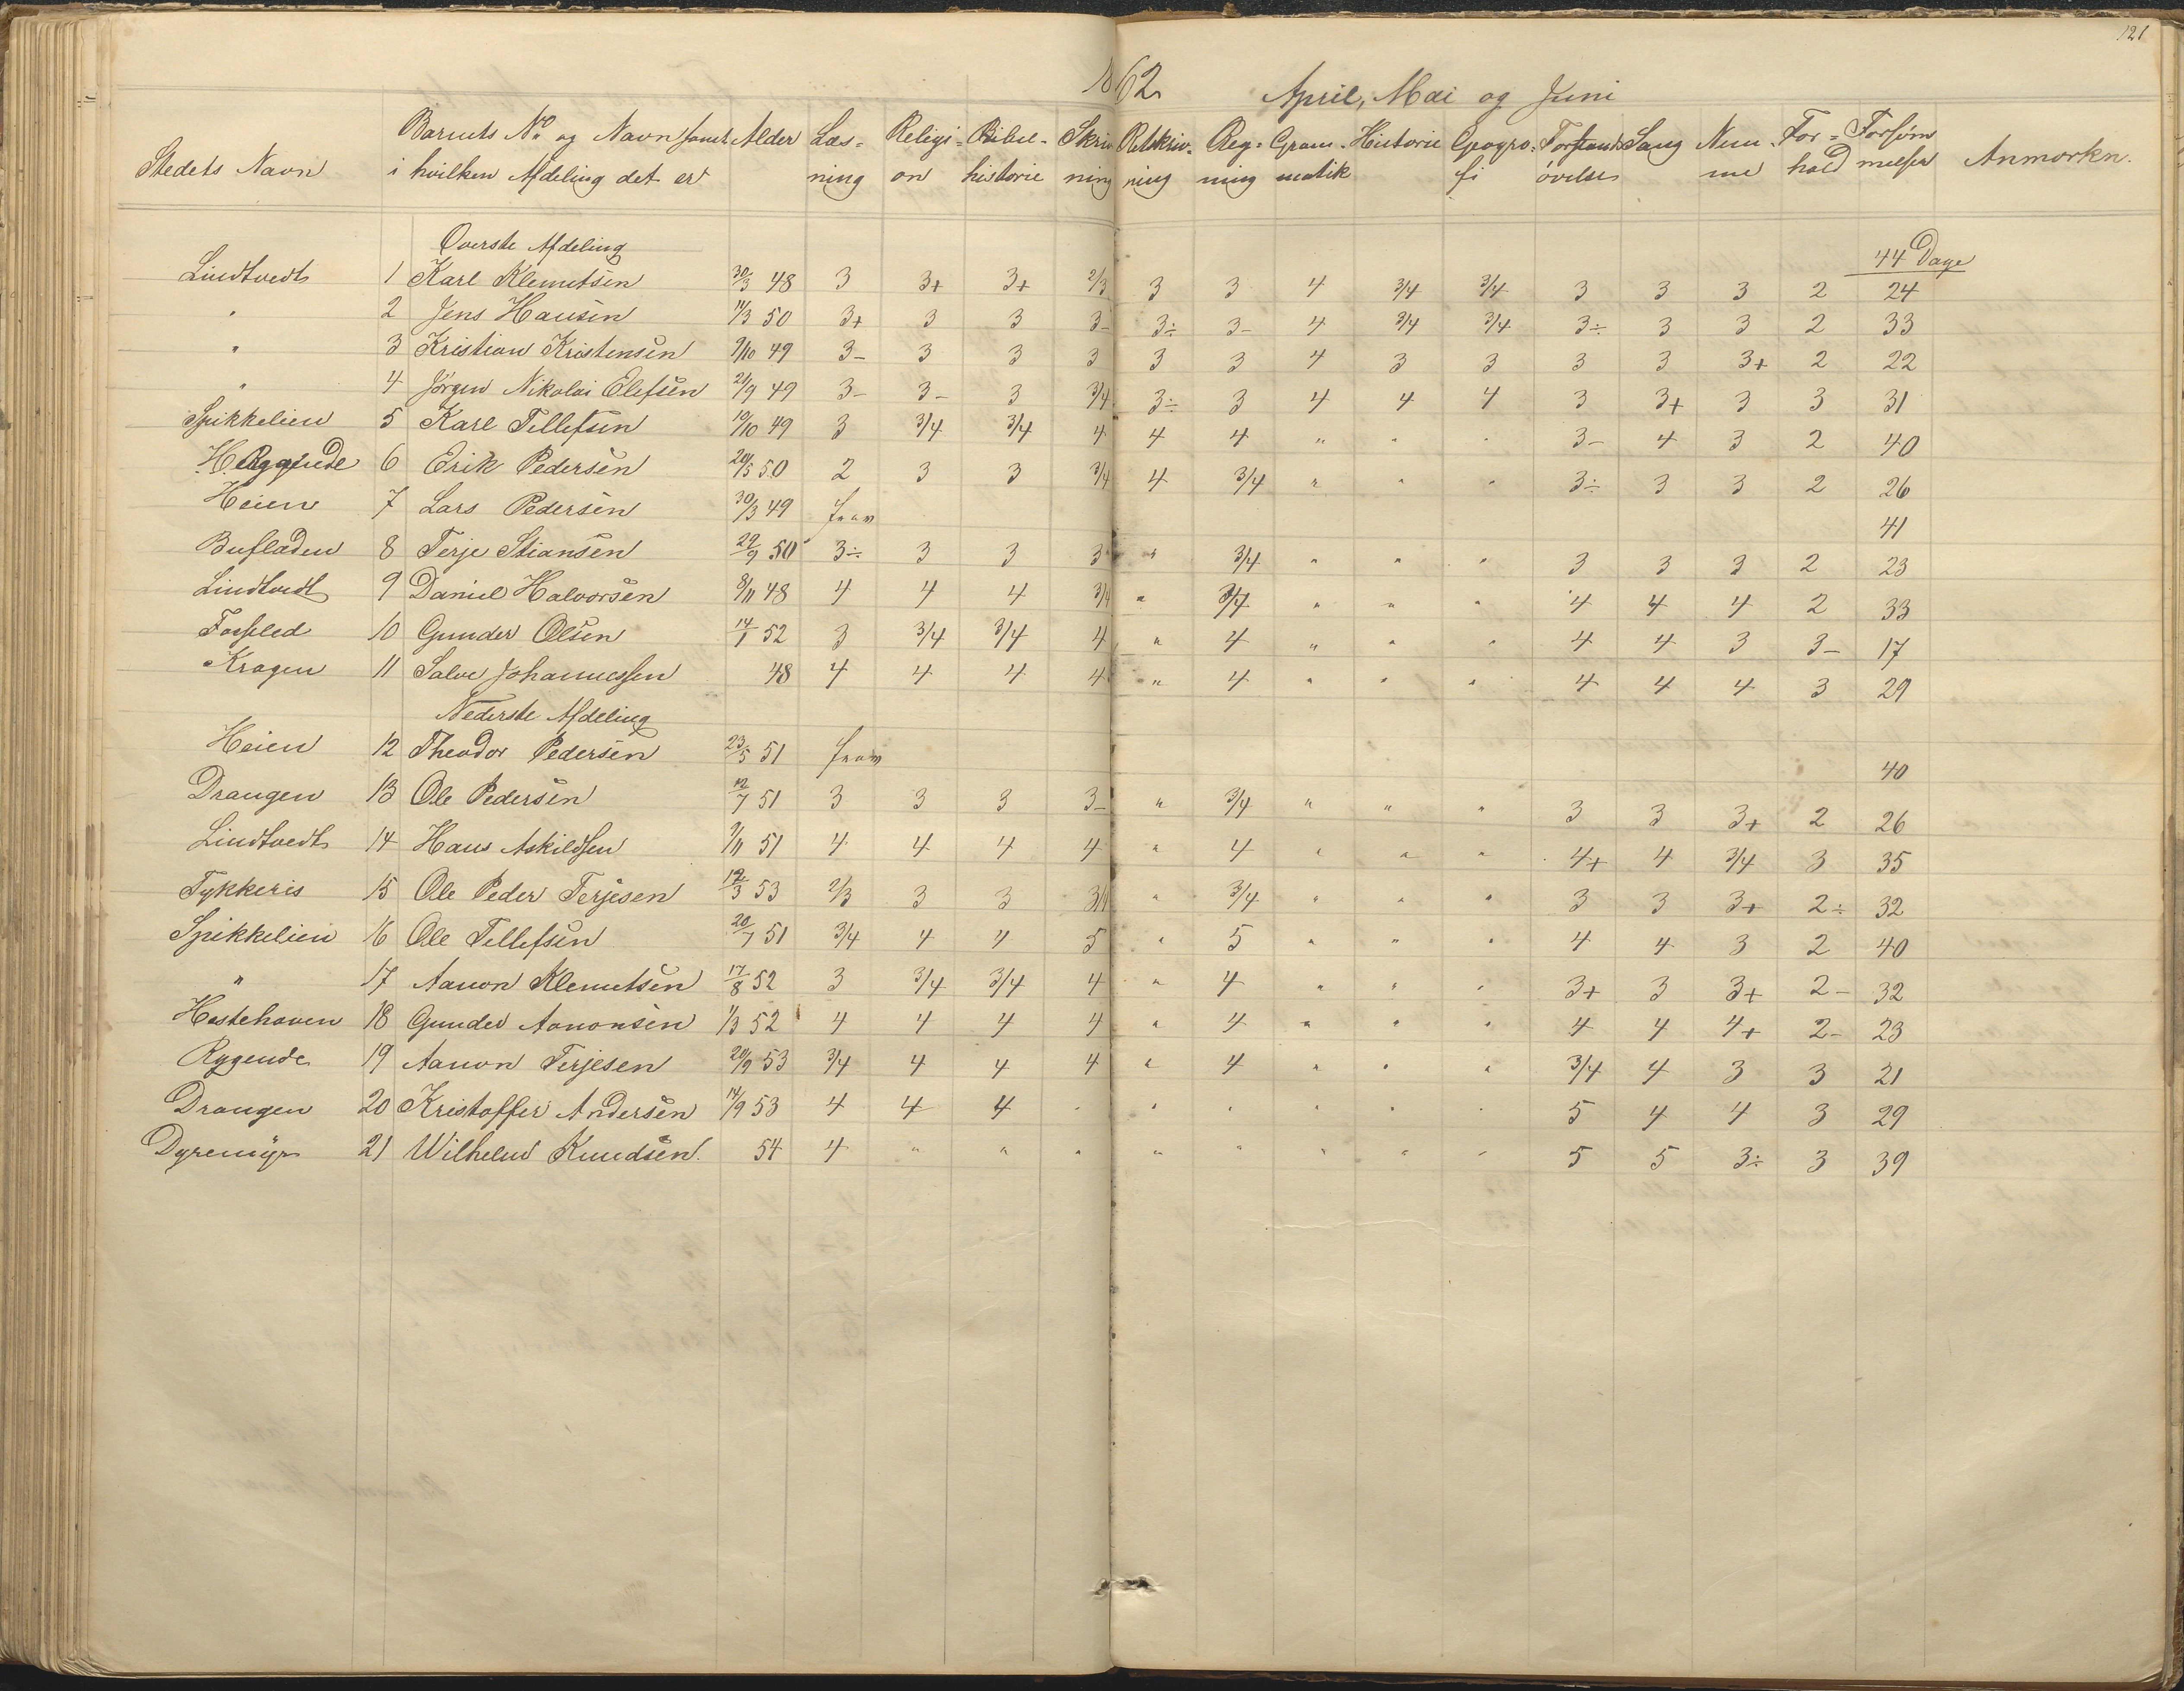 121
1862 April, Mai og Juni
Stedets Navn Barnets No og Navn samt i hvilken Afdeling det er Alder Læs=ning Religi=on Bibel-historie Skrivning Retskriv-ning Reg=ning Gram-matik Historie Geogra=fi Forstands øvelse Sang Nem-me For=hold Forsømmelser Anmærkn.
Øverste Afdeling 44 Dage
Lindtvedt 1 Karl Klemetsen 30/3 48 3 3+ 3+ 2/3 3 3 4 3/4 3/4 3 3 3 2 24
" 2 Jens Hansen 11/3 50 3+ 3 3 3- 3÷ 3- 4 3/4 3/4 3÷ 3 3 2 33
" 3 Kristian Kristensen 9/10 49 3- 3 3 3 3 3 4 3 3 3 3 3+ 2 22
" 4 Jørgen Nikolai Elefsen 21/9 49 3- 3- 3 3/4 3÷ 3 4 4 4 3 3+ 3 3 31
Spikkelien 5 Karl Tellefsen 10/10 49 3 3/4 3/4 4 4 4 " " " 3- 4 3 2 40
Ryggende 6 Erik Pedersen 20/5 50 2 3 3 3/4 4 3/4 " " " 3÷ 3 3 2 26
Heien 7 Lars Pedersen 30/3 49 frav 41
Bufladen 8 Terje Stiansen 22/9 50 3÷ 3 3 3 " 3/4 " " " 3 3 3 2 23
Lindtvedt 9 Daniel Halvorsen 8/11 48 4 4 4 3/4 " 3/4 " " " 4 4 4 2 33
Fosseled 10 Gunder Olsen 14/1 52 3 3/4 3/4 4 " 4 " " " 4 4 3 3- 17
Kragen 11 Salve Johannessen 48 4 4 4 4 " 4 " " " 4 4 4 3 29
Nederste Afdeling
Heien 12 Theodor Pedersen 23/5 51 frav 40
Drangen 13 Ole Pedersen 12/7 51 3 3 3 3- " 3/4 " " " 3 3 3+ 2 26
Lindtvedt 14 Hans Askildsen 9/11 51 4 4 4 4 " 4 " " " 4+ 4 3/4 3 35
Tykkeris 15 Ole Peder Terjesen 12/3 53 2/3 3 3 3/4 " 3/4 " " " 3 3 3+ 2÷ 32
Spikkelien 16 Ole Tellefsen 20/7 51 3/4 4 4 5 " 5 " " " 4 4 3 2 40
" 17 Aanon Klemetsen 17/8 52 3 3/4 3/4 4 " 4 " " " 3+ 3 3+ 2- 32
Hestehaven 18 Gunder Aanonsen 1/3 52 4 4 4 4 " 4 " " " 4 4 4+ 2- 23
Rygende 19 Aanon Terjesen 20/9 53 3/4 4 4 4 " 4 " " " 3/4 4 3 3 21
Drangen 20 Kristoffer Andersen 14/9 53 4 4 4 " " " " " " 5 4 4 3 29
Dyremyr 21 Wilhelm Knudsen. 54 4 " " " " " " " " 5 5 3÷ 3 39